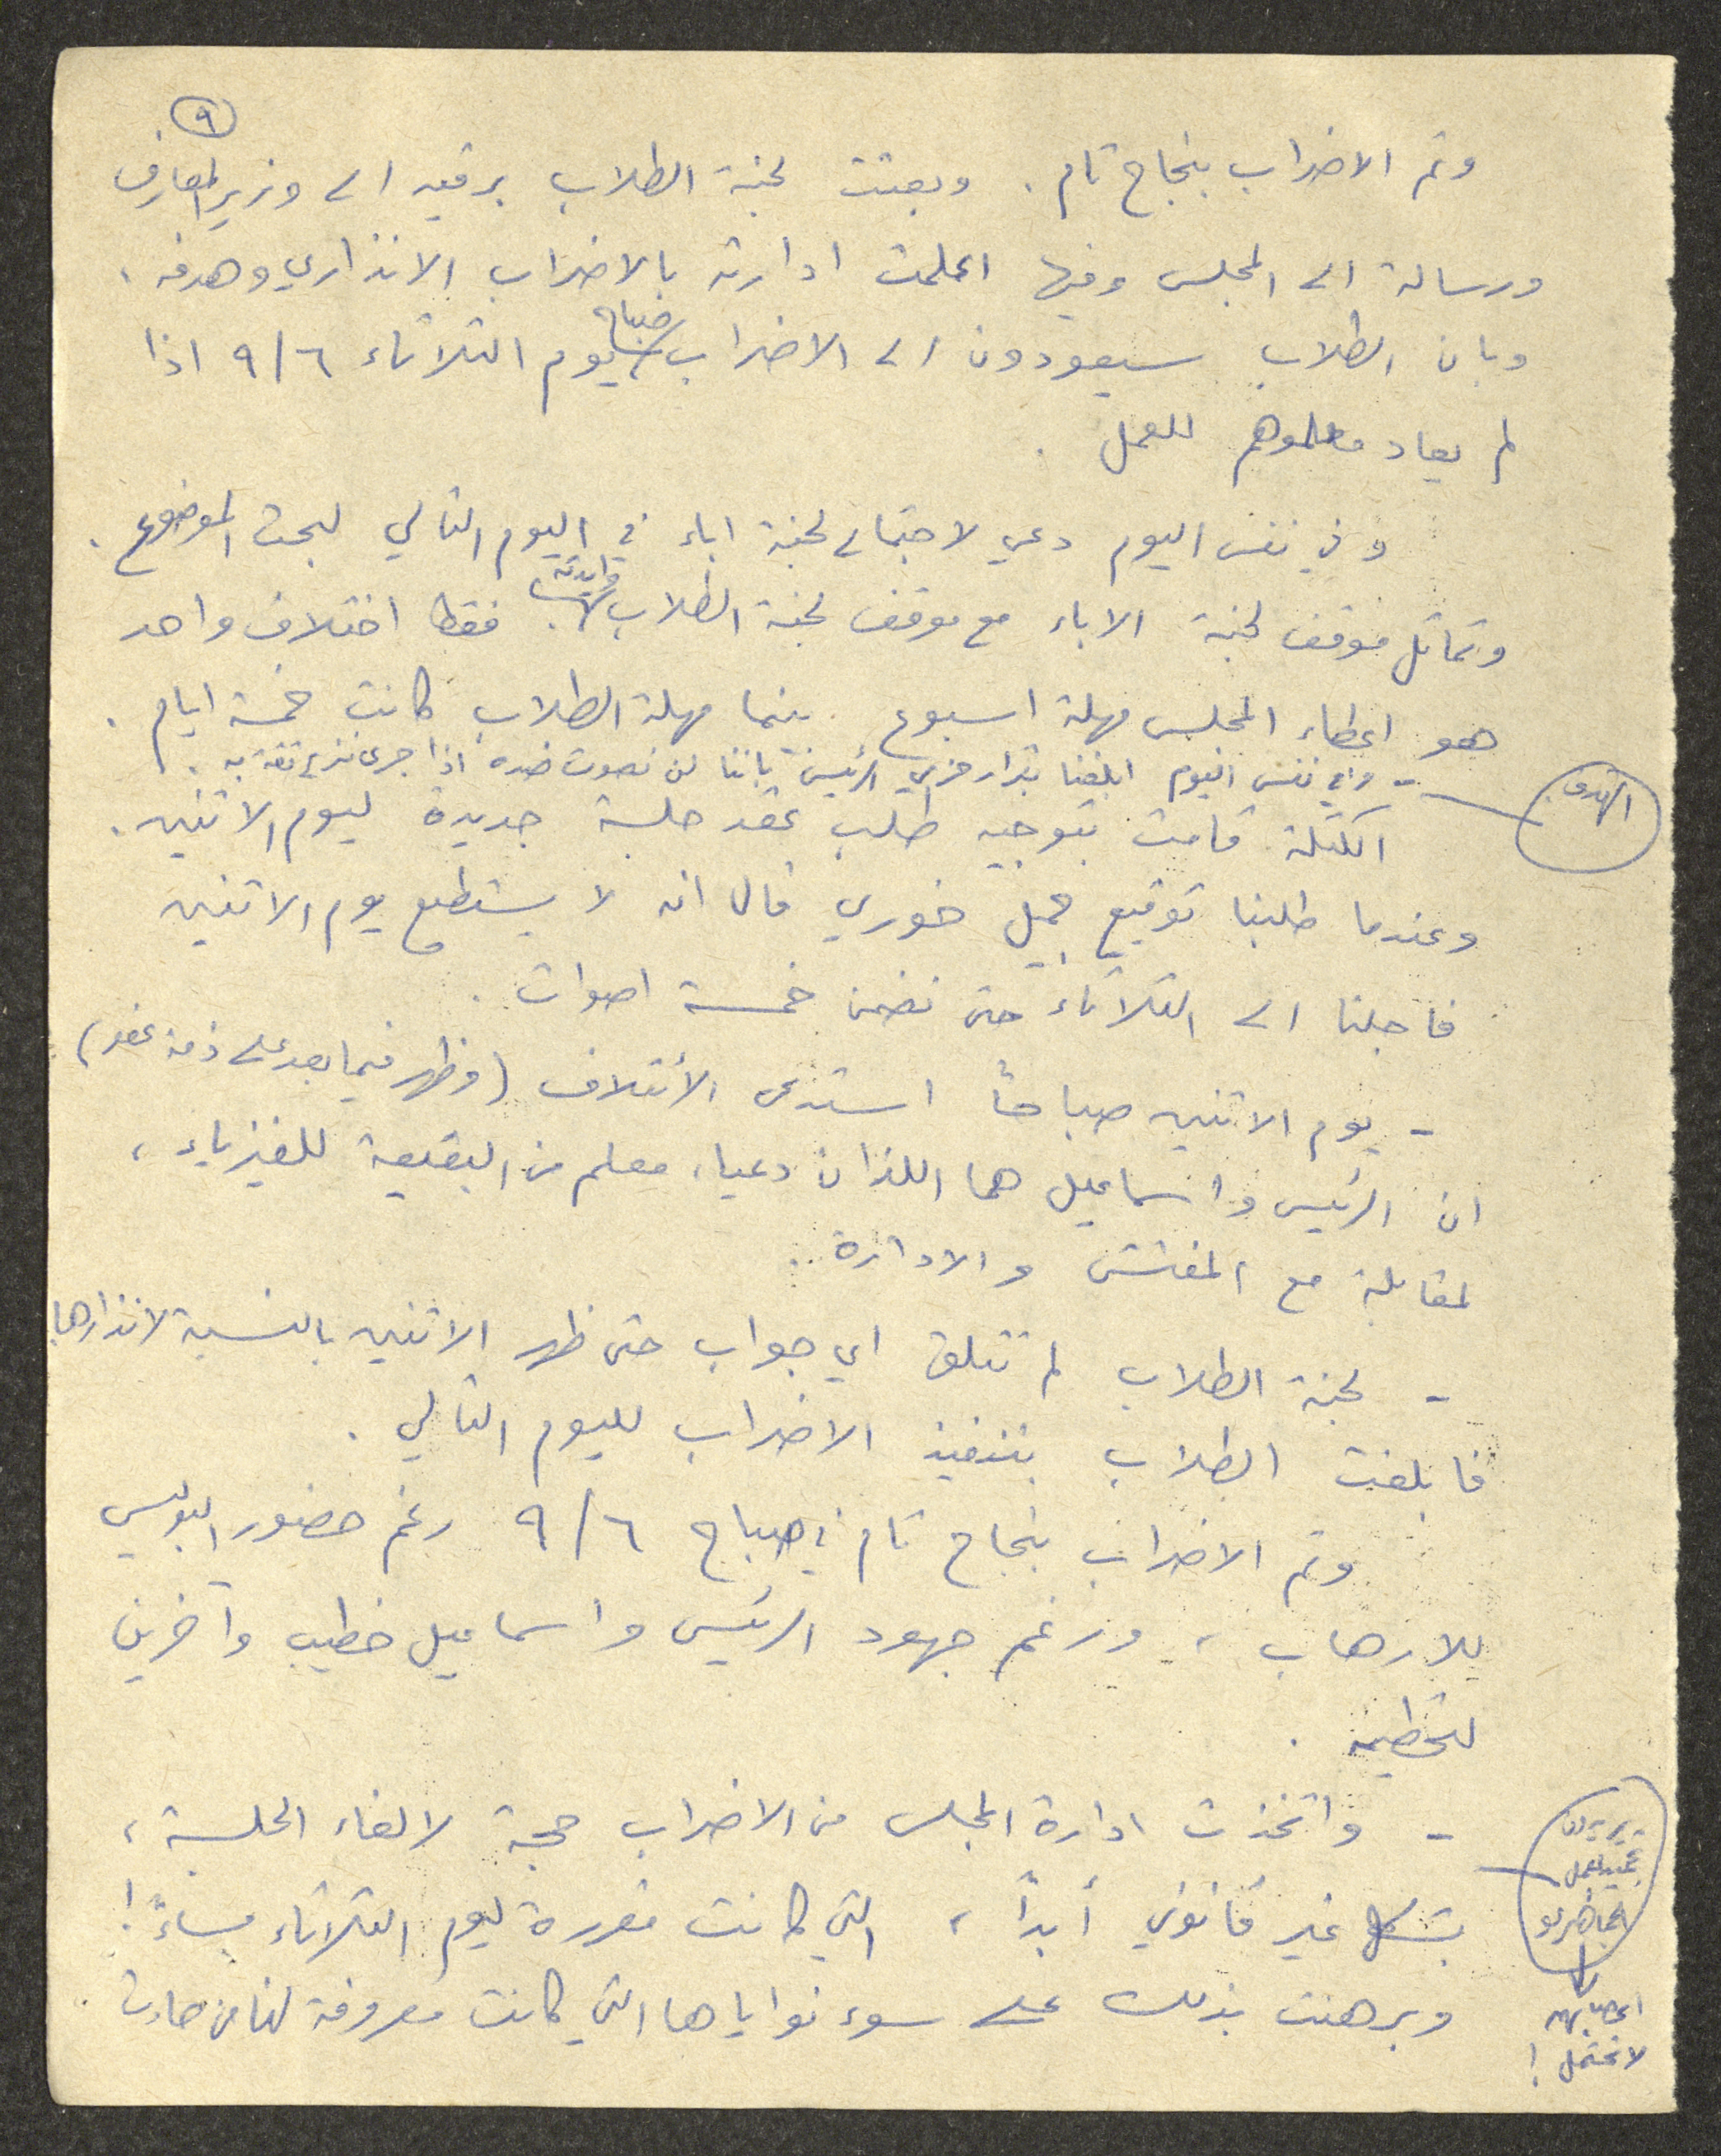 ٩
وتم الاضراب بنجاح تام . وبعثت لجنة الطلاب برقيه الى وزير المعارف
ورسالة الى المجلس وفيها اعلمت ادارته بالاضراب الانذاري وهدفه .
وبان الطلاب سيعودون الى الاضراب صباح يوم الثلاثاء ٩/٦ اذا
لم يعاد معلموهم للعمل .
وفي نفس اليوم دعي لاجتماع لجنة اباء في اليوم التالي لبحث الموضوع .
وتماثل موقف لجنة الاباء مع موقف لجنة الطلاب وايدته . فقط اختلاف واحد
هو اعطاء المجلس مهلة اسبوع بينما مهلة الطلاب كانت خمسة ايام .
- وفي نفس اليوم ابلغنا بقرار حزبي الرئيس باننا لن نصوت ضده اذا جرى نزع ثقة به .
الهدف
الكتلة قامت بتوجيه طلب عقد جلسة جديدة ليوم الاثنين .
وعندما طلبنا توقيع جميل خوري قال انه لا يستطيع يوم الاثنين
فاجلنا الى الثلاثاء حتى نضمن خمسة اصوات .
- يوم الاثنين صباحاً استدعى الأئتلاف (وظهر فيما بعد على ذمة عفو)
ان الرئيس واسماعيل هما اللذان دعيا، معلم من البقيعة للفيزياء ،
لمقابلة مع المفتش والادارة .
- لجنة الطلاب لم تتلق اي جواب حتى ظهر الاثنين بالنسبة لانذارها
فابلغت الطلاب بتنفيذ الاضراب لليوم التالي .
وتم الاضراب بنجاح تام في صباح ٩/٦ رغم حضور البوليس
للارهاب ، ورغم جهود الرئيس واسماعيل خطيب وآخرين
لتحطيمه .
- واتخذت ادارة المجلس من الاضراب حجة لالغاء الجلسة ،
بشكل غير قانوني أبداً ، التي كانت مقررة ليوم الثلاثاء مساءً !
وبرهنت بذلك على سوء نواياها التي كانت معروفة لنا من
يريدون
العمل
اعصابهم
لا تحتمل !